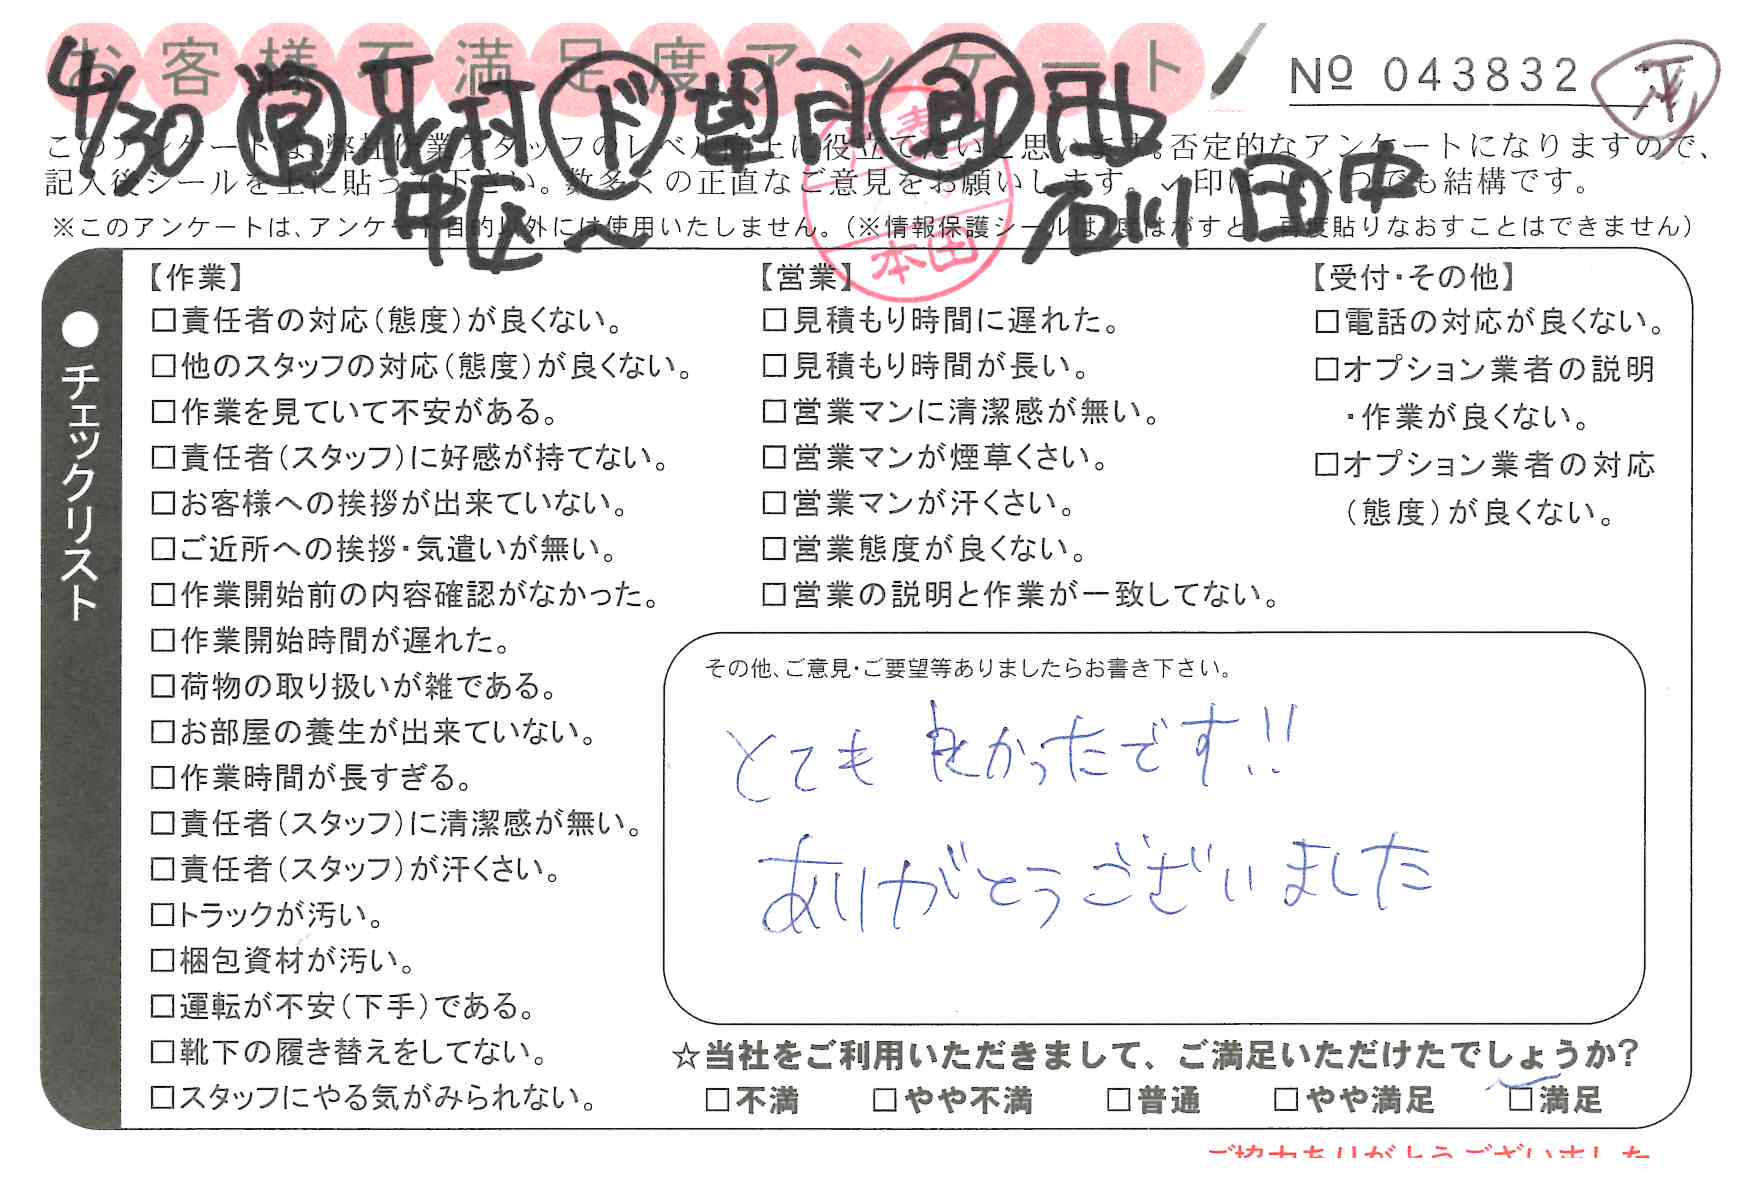 お客様不満足度アンケート
№ 043832
4/30 営 ド 望月 西
中込〜 石川 田中
このアンケートは、弊社作業スタッフのレベル向上に役立てたいと思います。否定的なアンケートになりますので、
記入後シールを上に貼って下さい。数多くの正直なご意見をお願いします。✓印は、いくつでも結構です。
※このアンケートは、アンケート目的以外には使用いたしません。（※情報保護シールは1度はがすと、再度貼りなおすことはできません）
本田
●チェックリスト
【作業】
□責任者の対応（態度）が良くない。
□他のスタッフの対応（態度）が良くない。
□作業を見ていて不安がある。
□責任者（スタッフ）に好感が持てない。
□お客様への挨拶が出来ていない。
□ご近所への挨拶・気遣いが無い。
□作業開始前の内容確認がなかった。
□作業開始時間が遅れた。
□荷物の取り扱いが雑である。
□お部屋の養生が出来ていない。
□作業時間が長すぎる。
□責任者（スタッフ）に清潔感が無い。
□責任者（スタッフ）が汗くさい。
□トラックが汚い。
□梱包資材が汚い。
□運転が不安（下手）である。
□靴下の履き替えをしてない。
□スタッフにやる気がみられない。
【営業】
□見積もり時間に遅れた。
□見積もり時間が長い。
□営業マンに清潔感が無い。
□営業マンが煙草くさい。
□営業マンが汗くさい。
□営業態度が良くない。
□営業の説明と作業が一致してない。
【受付・その他】
□電話の対応が良くない。
□オプション業者の説明
・作業が良くない。
□オプション業者の対応
（態度）が良くない。
その他、ご意見・ご要望等ありましたらお書き下さい。
とても良かったです!!
ありがとうございました
☆当社をご利用いただきまして、ご満足いただけたでしょうか？
□不満 □やや不満 □普通 □やや満足 □満足
ご協力ありがとうございました